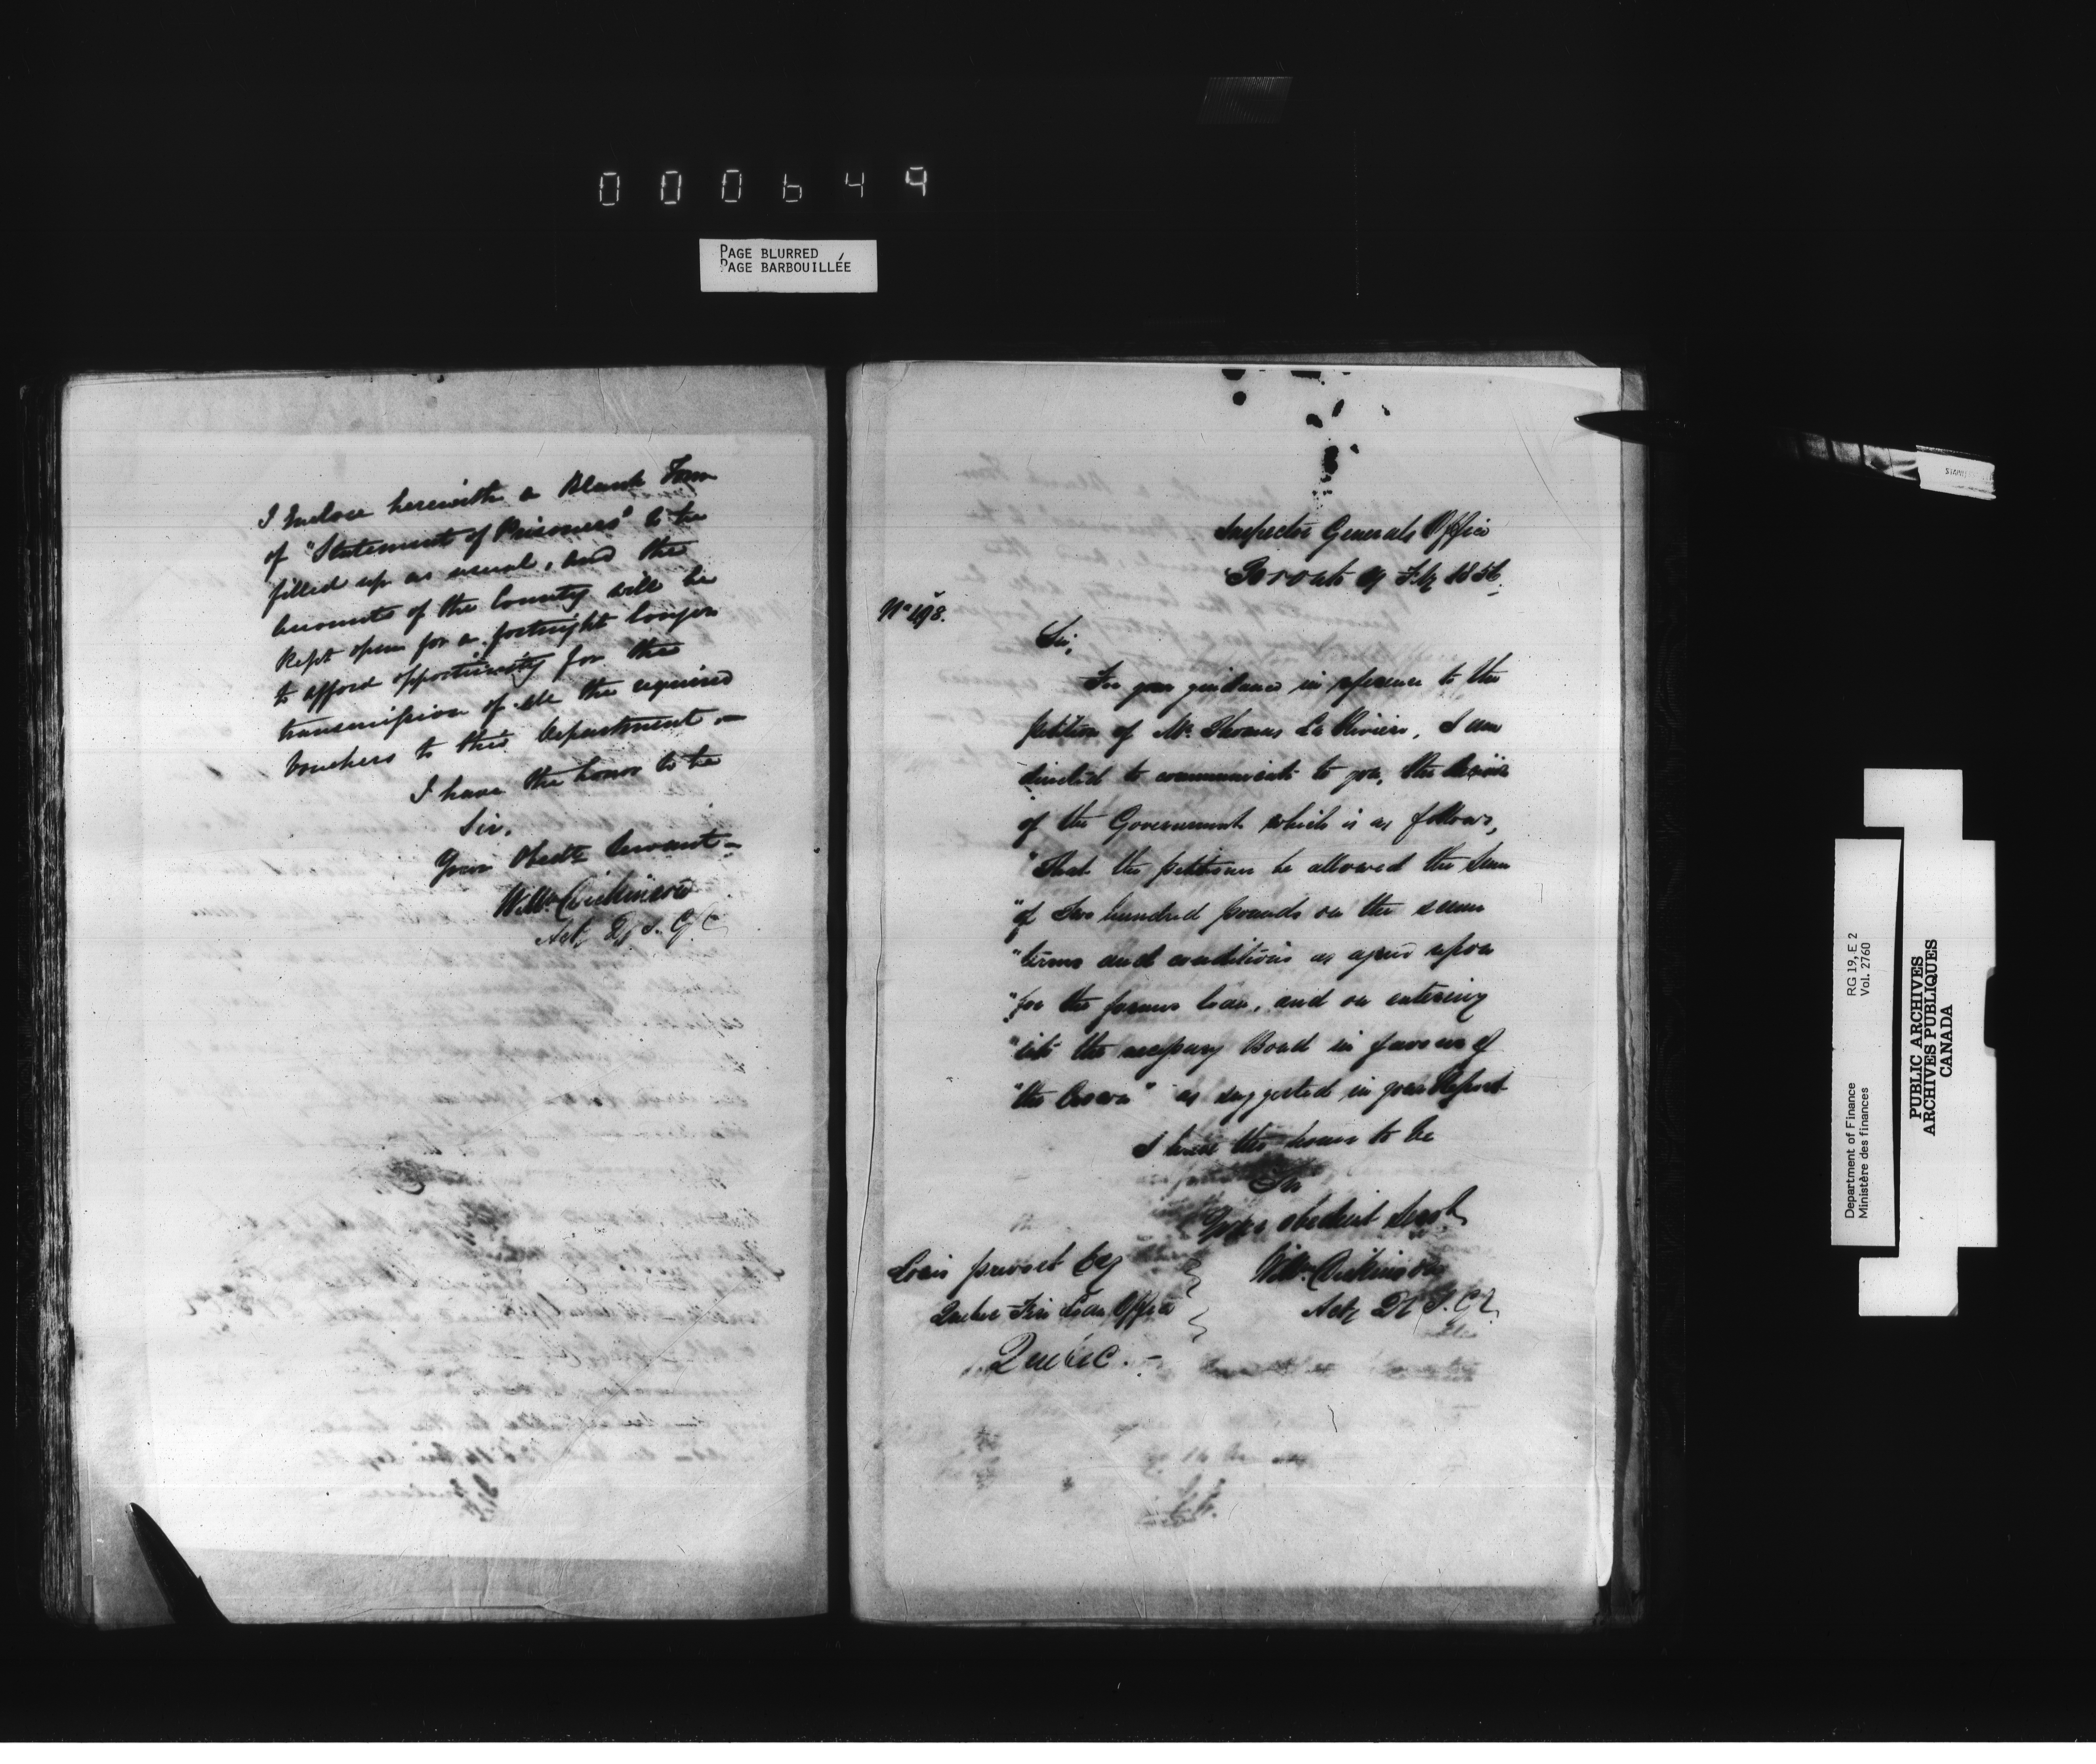 000649
PAGE BLURRED
PAGE BARBOUILLÉE
I Enclose herewith a Blank Form
of "Statement of Prisoners" to be
filled up as usual, and the
accounts of the County will be
kept open for a fortnight longer
to afford opportunity for the
transmission of all the required
Vouchers to this Department —
I have the honor to be
Sir,
Your Obedt Servant —
Wm Dickinson
Actg Dy I. G.
Inspector Generals Office
Toronto Feby 1856.
No 498.
Sir,
For your guidance in reference to the
petition of Mr Thomas La Riviere, I am
directed to communicate to you, the decision
of the Government which is as follows,
"That the petitioner be allowed the Sum
"of Two hundred pounds on the same
"terms and conditions as agreed upon
"for the former loan, and on entering
"into the necessary Bond in favour of
"the Crown" as suggested in your Report
I have the honor to be
Sir
Your obedient Servt
Wm Dickinson
Actg Dy I. G.
Louis privost Esq
Quebec Fire Loan Office
Quebec. —
Department of Finance RG 19, E 2
Ministère des finances Vol. 2760
PUBLIC ARCHIVES
ARCHIVES PUBLIQUES
CANADA